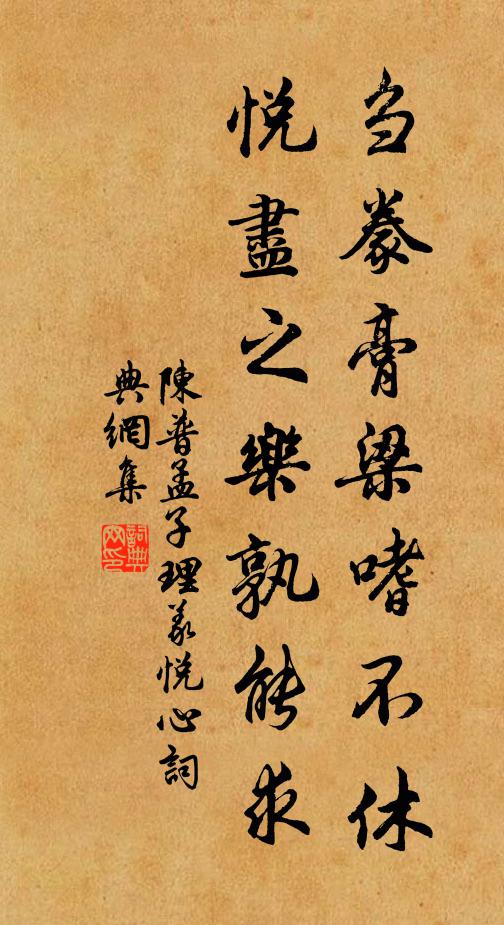 刍豢膏粱嗜不休
悦盡之樂孰能求
陳普孟子理義悦心詞
典網集
詞典网印